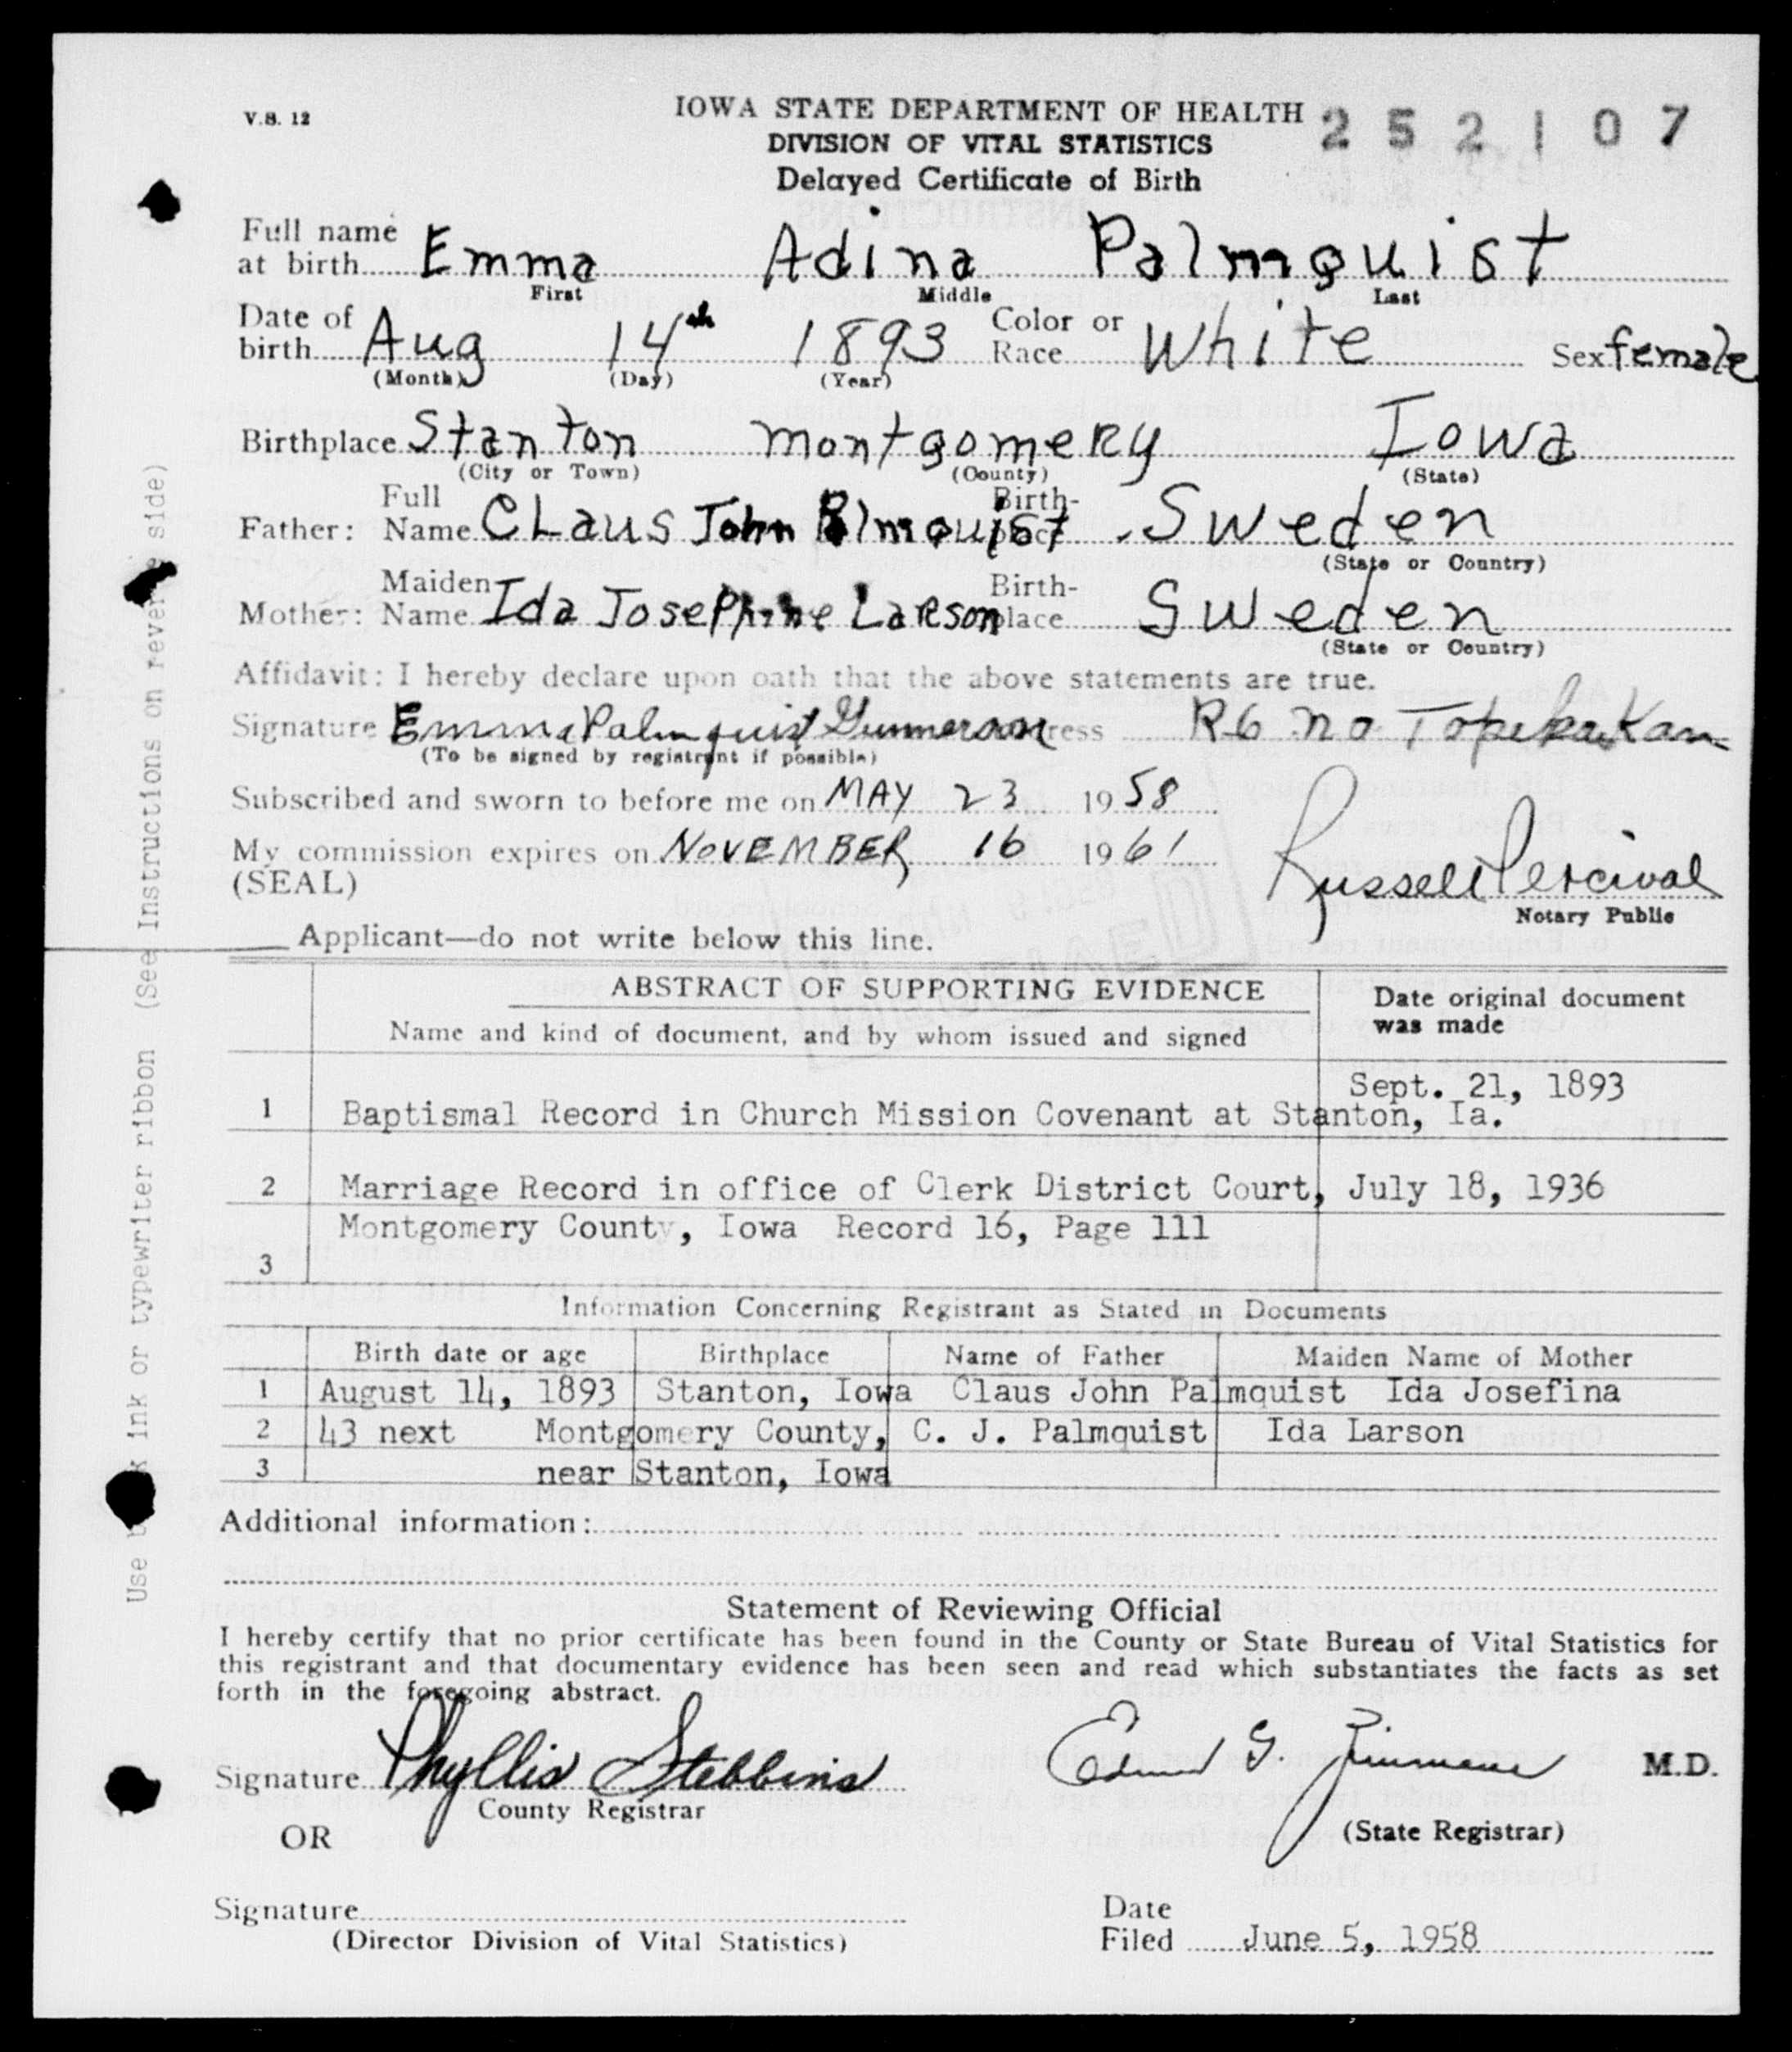 V.S. 12
IOWA STATE DEPARTMENT OF HEALTH
252107
DIVISION OF VITAL STATISTICS
Delayed Certificate of Birth
Full name at birth Emma Adina Palmquist
First Middle Last
Date of birth Aug 14th 1893 Color or Race White Sex female
(Month) (Day) (Year)
Birthplace Stanton Montgomery Iowa
(City or Town) (County) (State)
Father: Full Name Claus John Palmquist Birthplace Sweden
(State or Country)
Mother: Maiden Name Ida Josephine Larson Birthplace Sweden
(State or Country)
Affidavit: I hereby declare upon oath that the above statements are true.
Signature Emma Palmquist Gunnerson Address R6 no Topeka Kan
(To be signed by registrant if possible)
Subscribed and sworn to before me on MAY 23 1958
My commission expires on NOVEMBER 16 1961
(SEAL)
Russell Percival
Notary Public
Applicant—do not write below this line.
ABSTRACT OF SUPPORTING EVIDENCE
Name and kind of document, and by whom issued and signed
Date original document was made
1 Baptismal Record in Church Mission Covenant at Stanton, Ia. Sept. 21, 1893
2 Marriage Record in office of Clerk District Court, July 18, 1936
Montgomery County, Iowa Record 16, Page 111
3
Information Concerning Registrant as Stated in Documents
Birth date or age Birthplace Name of Father Maiden Name of Mother
1 August 14, 1893 Stanton, Iowa Claus John Palmquist Ida Josefina
2 43 next Montgomery County, C. J. Palmquist Ida Larson
3 near Stanton, Iowa
Additional information:
Statement of Reviewing Official
I hereby certify that no prior certificate has been found in the County or State Bureau of Vital Statistics for
this registrant and that documentary evidence has been seen and read which substantiates the facts as set
forth in the foregoing abstract.
Signature Phyllis Stebbins Edmund G. Zimmerer M.D.
County Registrar
(State Registrar)
OR
Signature
(Director Division of Vital Statistics)
Date Filed June 5, 1958
Use ink or typewriter ribbon (See Instructions on reverse side)